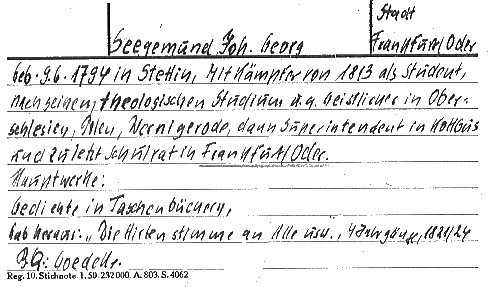 Stadt
Seegemund Joh. Georg Frankfurt/Oder
geb. 9.6. 1794 in Stettin, Mitkämpfer von 1813 als Student,
nach seinem theologischen Studium u.a. Geistlicher in Ober-
schlesien, Polen, Wernigerode, dann Superintendent in Kottbus
und zuletzt Schulrat in Frankfurt/Oder.
Hauptwerke:
Gedichte in Taschenbüchern,
gab heraus: „Die Hirtenstimme an Alle usw., 4 Jahrgänge, 1821/24
BQ: Goedeke.
Reg. 10. Stichnote. 1. 50. 232000. A. 803. S. 4062